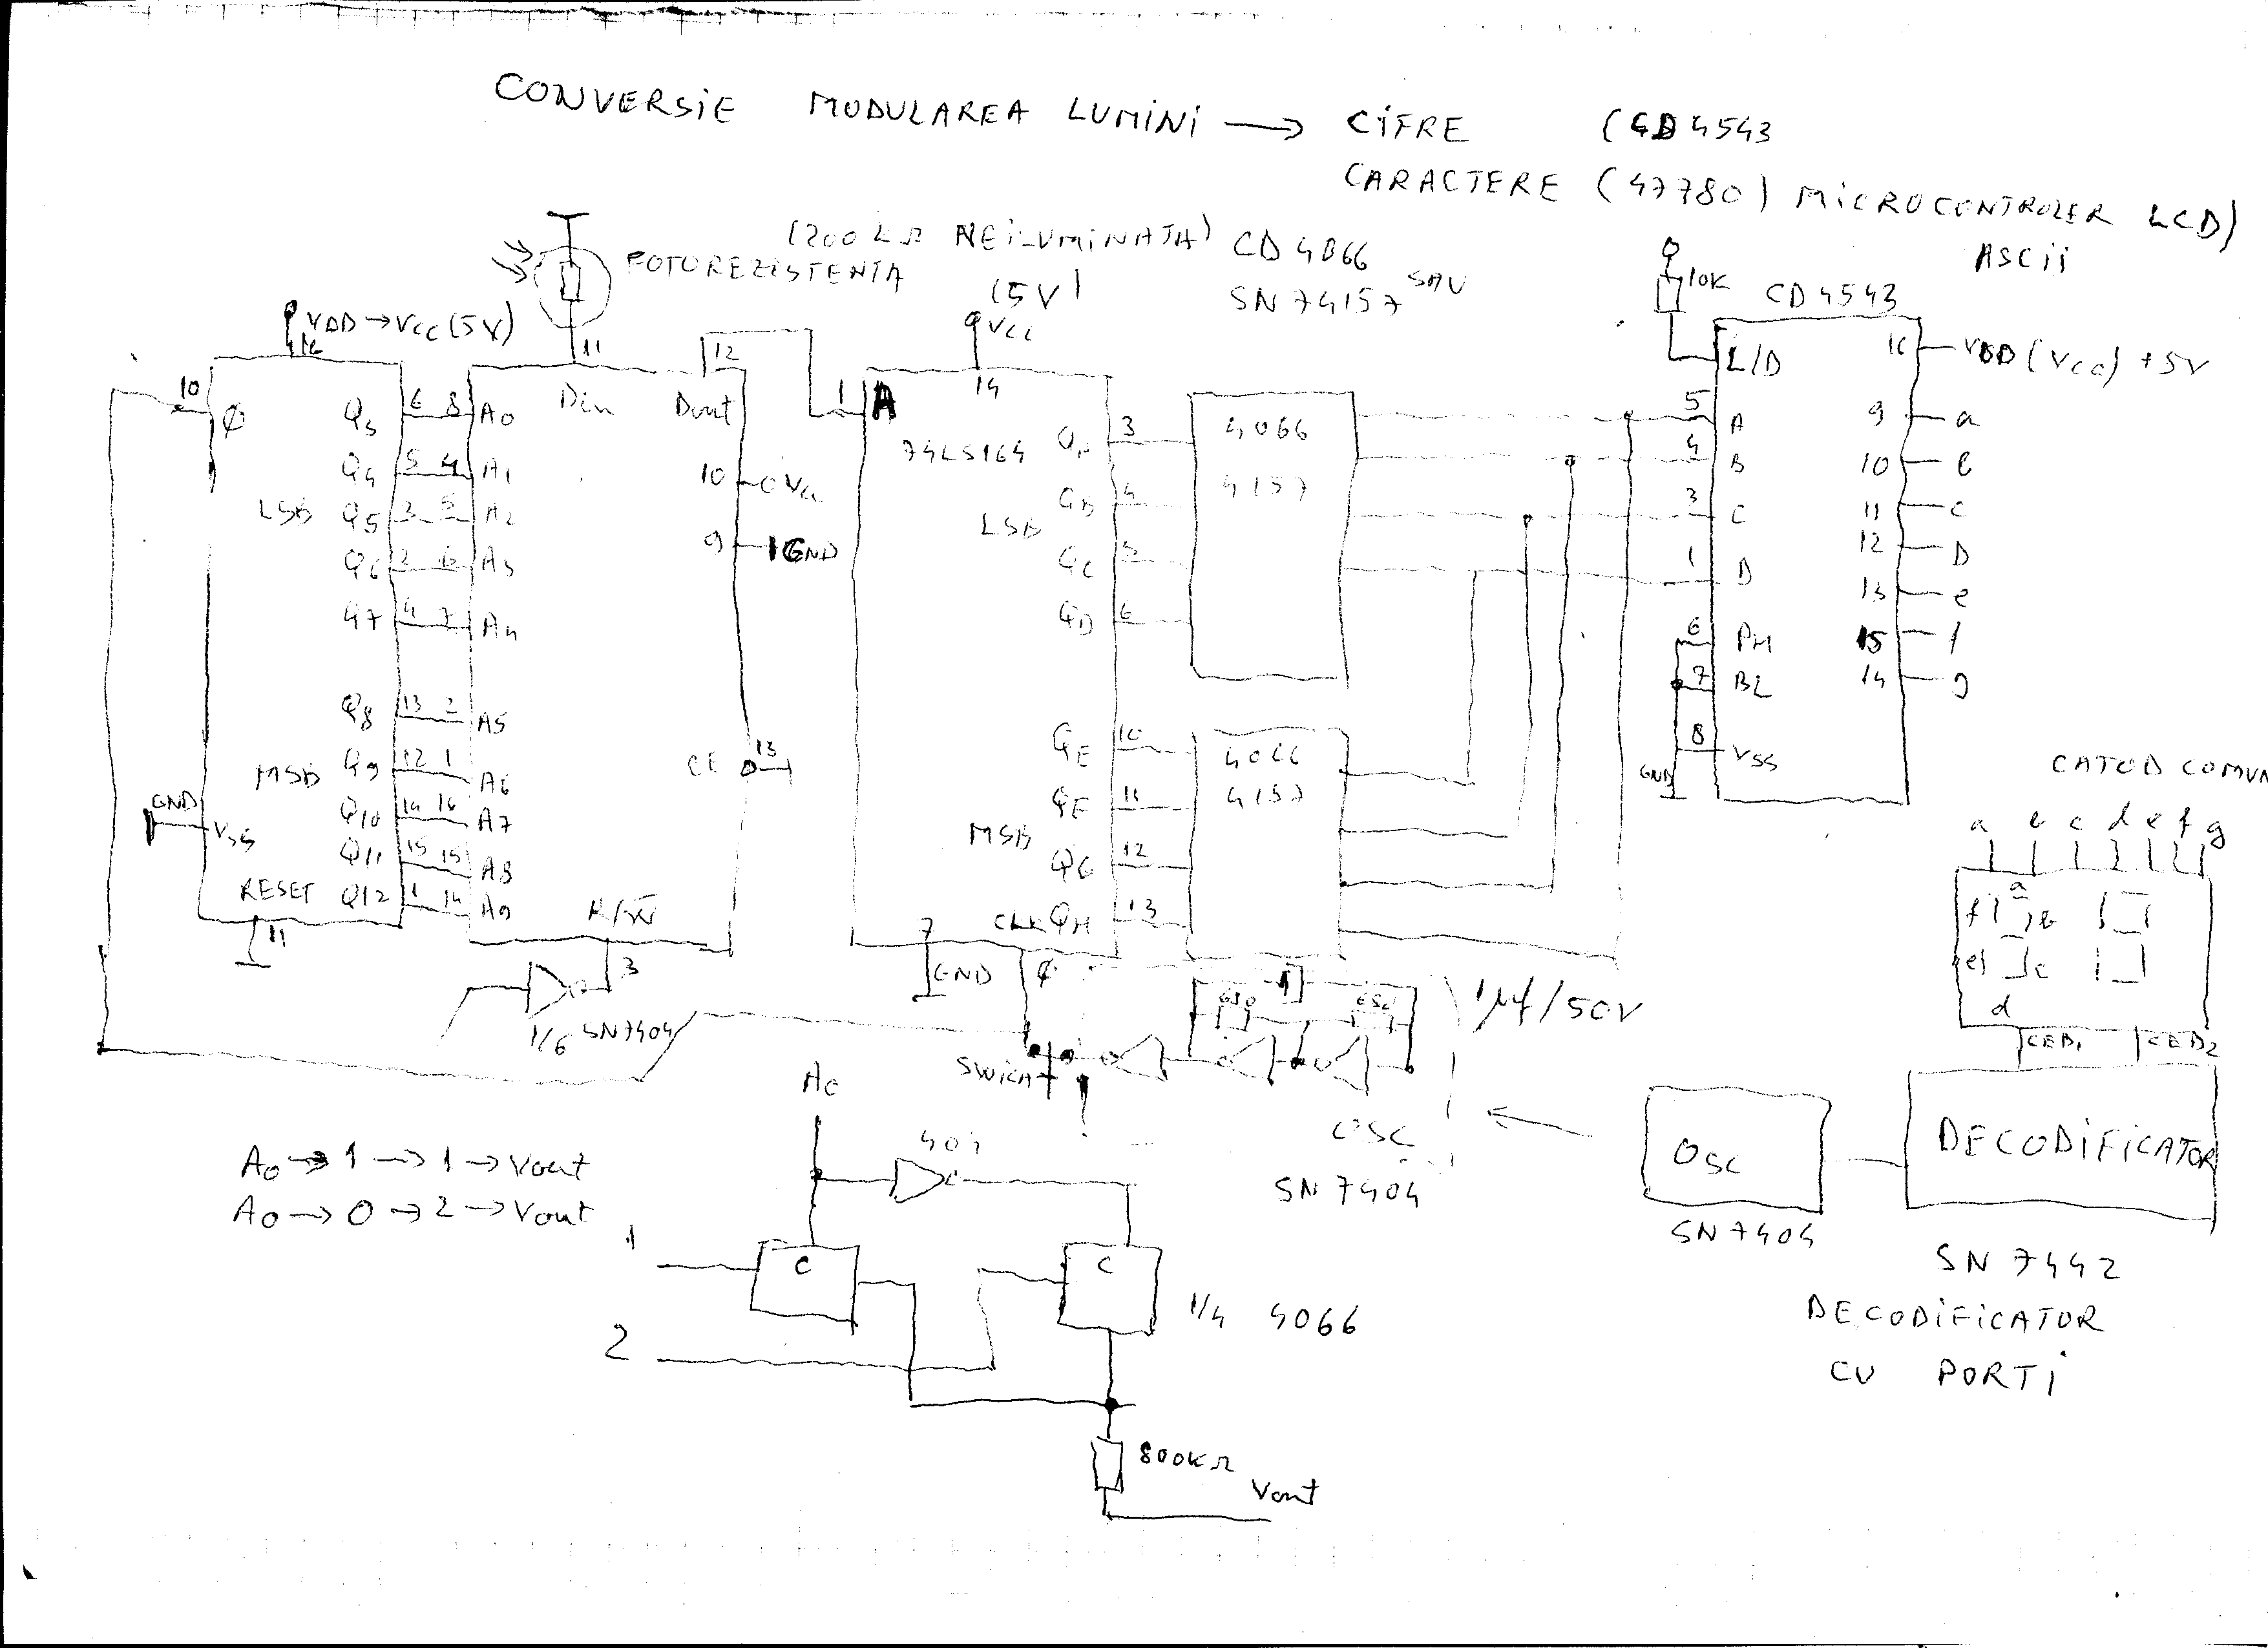 CONVERSiE MODULAREA LUMiNi → CiFRE (CD4543
CARACTERE (47780) MiCROCONTROLER LCD)
ASCii
(200kΩ NEiLUMiNATA) CD4066
FOTOREZISTENTA
SAU
SN74157
(5V)
VCC
VDD→VCC(5V)
16
10
Φ
Q3 6 8 A0
Q4 5 4 A1
LSB Q5 3 5 A2
Q6 2 6 A3
Q7 4 7 A4
Q8 13 2 A5
MSB Q9 12 1 A6
Q10 14 16 A7
Q11 15 15 A8
RESET Q12 1 14 A9
GND
VSS
11
11
12
Din
Dout
10 VCC
9 GND
CE 13
R/W
3
1/6 SN7404
1 A
14
74LS164
QA 3
QB 4
LSB
QC 5
QD 6
QE 10
QF 11
MSB
QG 12
CLK QH 13
7
GND
4066
4157
4066
4157
10K
CD4543
L/D
16 VDD (VCC) +5V
5 A
4 B
3 C
1 D
6 PH
7 BL
8 VSS
GND
9 a
10 b
11 c
12 D
13 e
15 f
14 g
CATOD COMUN
a b c d e f g
a
f b
e c
d
CED1 CED2
1μf/50V
SWiCH
OSC
SN7404
OSC
SN7404
DECODiFiCATOR
SN7442
DECODiFiCATOR
CU PORTi
A0
404
A0 → 1 → 1 → Vout
A0 → 0 → 2 → Vout
1
C
C
2
1/4 4066
800kΩ
Vout